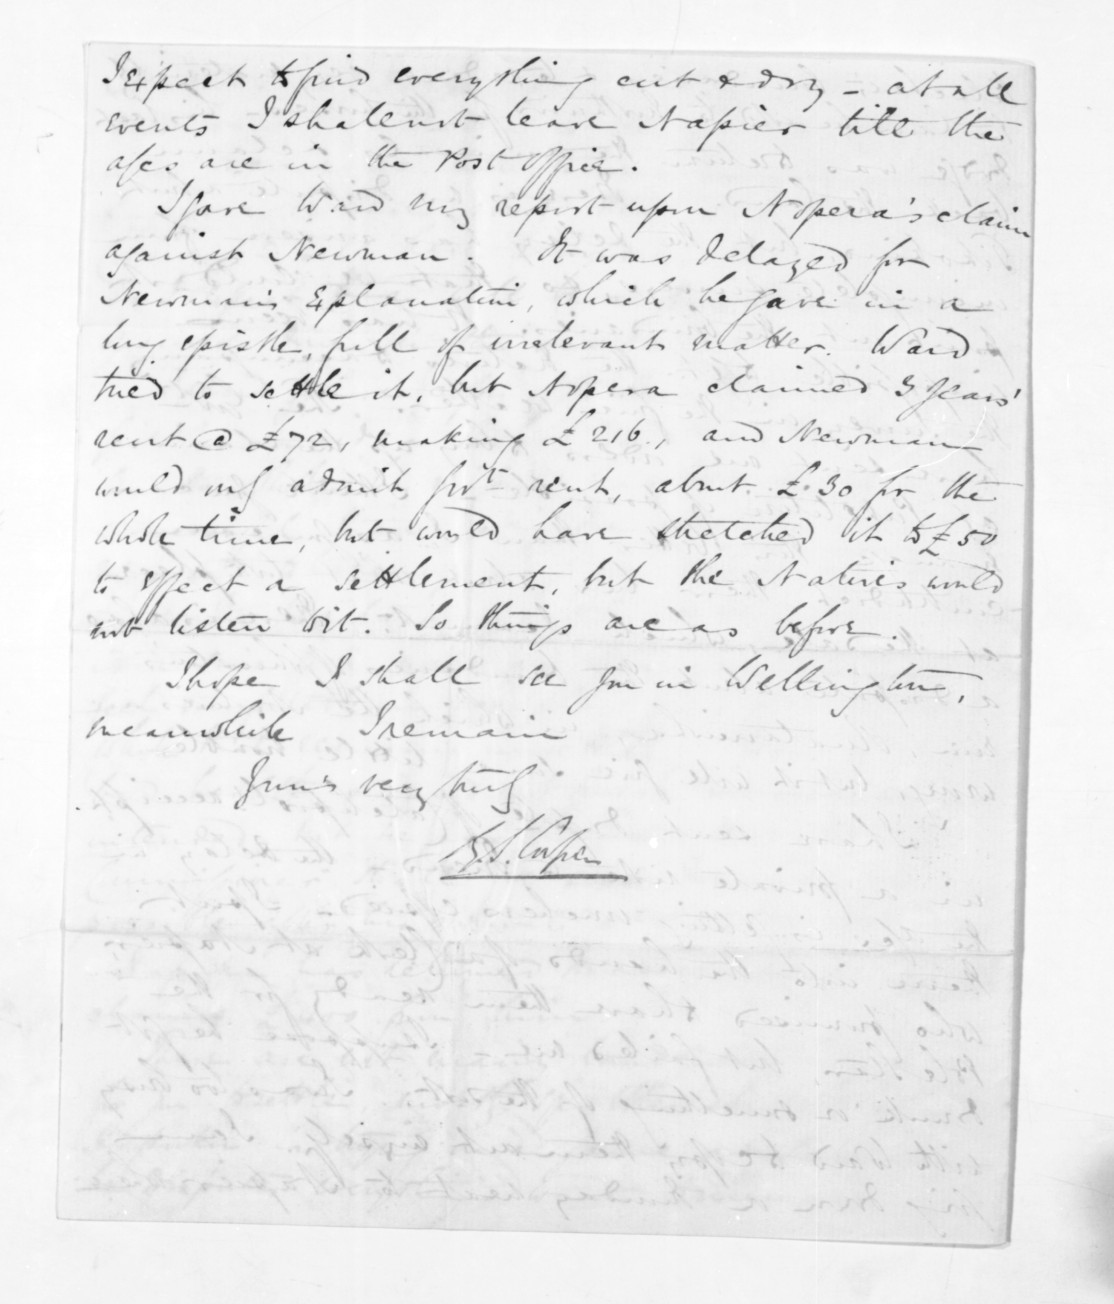 I expect to find everything cut & dry – at all
events I shall not leave Napier till the
a/cs are in the Post Office.
I gave Ward my report upon Nopera's claim
against Newman. It was delayed for
Newman's explanation, which he gave in a
long epistle, full of irrelevant matter. Ward
tried to settle it, but Nopera claimed 3 years'
rent @ £72, making £216., and Newman
would only admit for rent, about £30 for the
whole time, but would have stretched it to £50
to effect a settlement, but the Natives would
not listen to it. So things are as before.
I hope I shall see you in Wellington,
meanwhile I remain
Yours very truly
G. S. Cooper